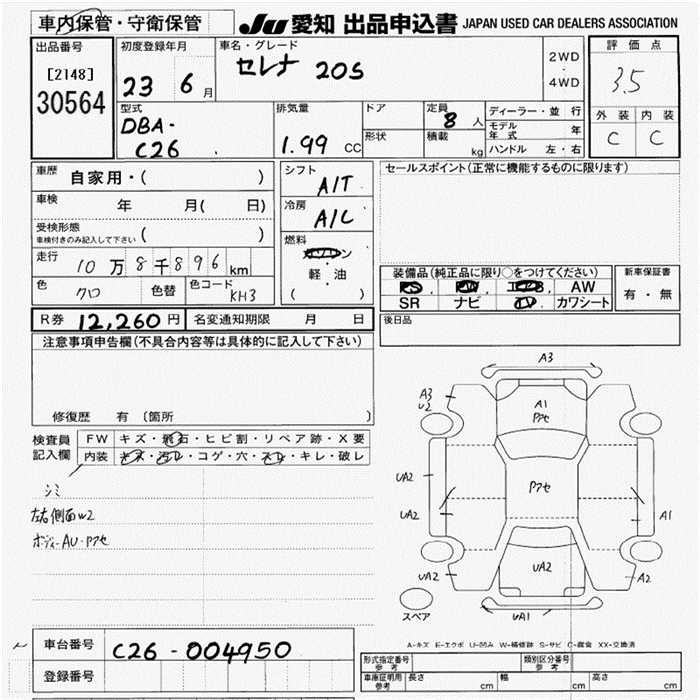 車内保管・守衛保管
JU 愛知 出品申込書 JAPAN USED CAR DEALERS ASSOCIATION
出品番号
[2148]
30564
初度登録年月
23 6月
車名・グレード
セレナ 20S
2WD
・
4WD
評価点
3.5
外装 内装
C C
型式
DBA-
C26
排気量
1.99 CC
ドア
形状
定員
8 人
積載
kg
ディーラー・並行
モデル年式 年
ハンドル 左・右
車歴 自家用・( )
車検 年 月( 日)
受検形態
車検付きのみ記入して下さい ( )
走行 10万8千896km
色 クロ 色替 色コード KH3
シフト
A/T
冷房
A/C
燃料
ガソリン
・
軽・油
( )
セールスポイント(正常に機能するものに限ります)
装備品(純正品に限り○をつけてください)
PS PW エアB AW
SR ナビ TV カワシート
新車保証書
有・無
後日品
R券 12,260円 名変通知期限 月 日
注意事項申告欄(不具合内容等は具体的に記入して下さい)
修復歴 有〔箇所 〕
検査員
記入欄
FW キズ・飛石・ヒビ割・リペア跡・X要
内装 キズ・汚レ・コゲ・穴・スレ・キレ・破レ
シミ
左右側面W2
ボディーAU・Pアセ
A3
A3
U2
A1
Pアセ
UA2
Pアセ
UA2
A1
UA2
UA2
A2
UA1
スペア
A-キズ E-エクボ U-凹み W-補修跡 S-サビ C-腐食 XX-交換済
車台番号 C26-004950
登録番号
形式指定番号
参考
類別区分番号
参考
車庫証明用
参考
長さ cm 幅 cm 高さ cm